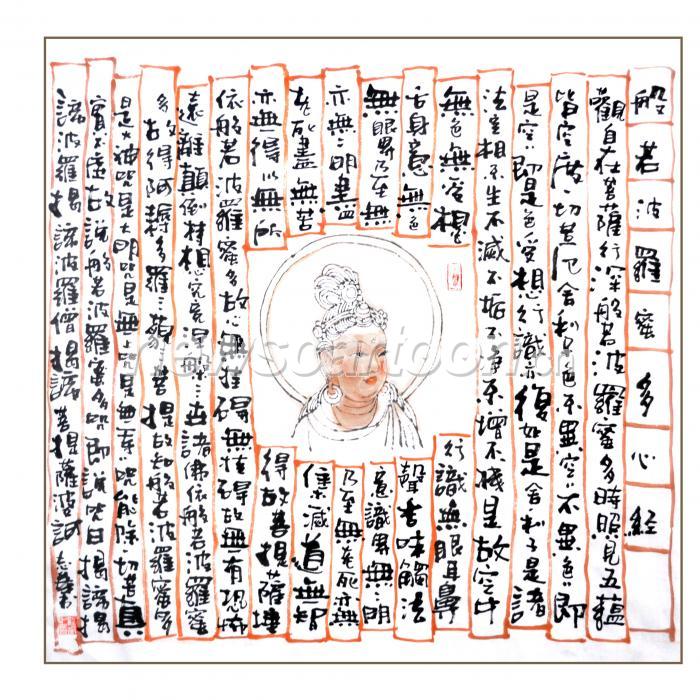 般若波羅蜜多心経
觀自在菩薩行深般若波羅蜜多時照見五蘊
皆空度一切苦厄舍利色不異空不異色即
是空即是色受想行識亦復如是舍利子是諸
法空相不生不滅不垢不淨不增不減是故空中
無色無受想
行識無眼耳鼻
舌身意無色
聲香味觸法
無眼界乃至無
意識界無明
亦無明盡
乃至無老死亦無
老死盡無苦
集滅道無智
亦無得以無所
得故菩提薩埵
依般若波羅蜜多故心無罣礙無罣礙故無有恐怖
遠離顛倒想究竟涅槃三世諸佛依般若波羅蜜
多故得阿耨多羅三藐菩提故知般若波羅蜜多
是大神咒是大明咒是無上咒是無等咒能除一切苦真
實不虛故說般若波羅蜜多咒即說咒曰揭諦揭
諦波羅揭諦波羅僧揭諦菩提薩婆訶